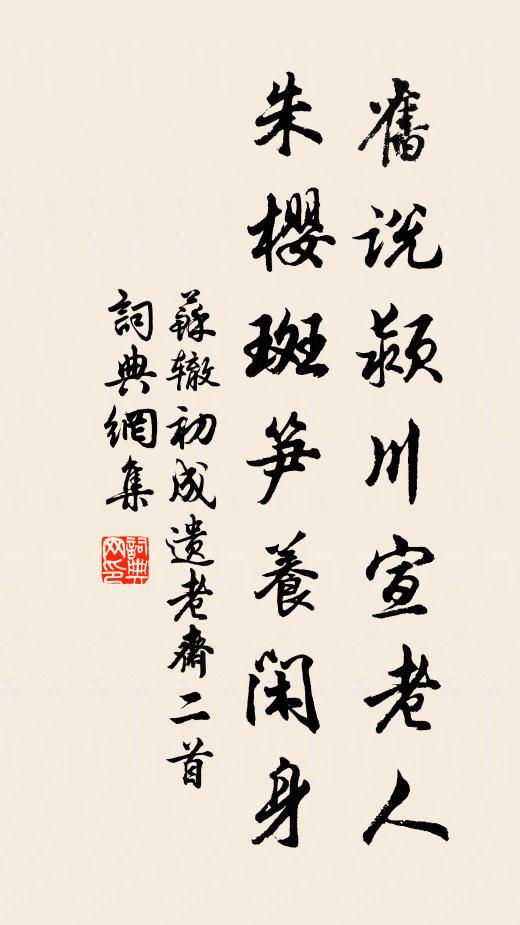 舊説潁川宣老人
朱櫻斑笋養閑身
蘇辙初成遗老齋二首
詞典網集
詞典网印